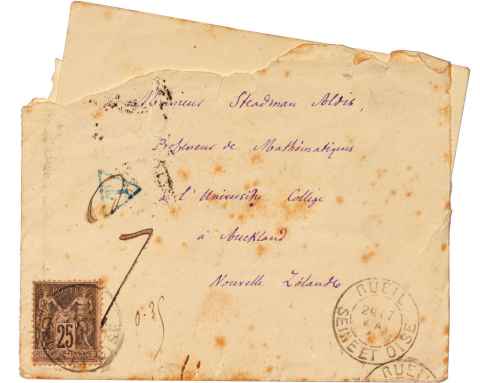 Monsieur Steadman Aldis,
Professeur de Mathématiques
à l'University College
à Auckland
Nouvelle Zélande
T
7
0.35
25
RUEIL
SEINE ET OISE
RUEIL